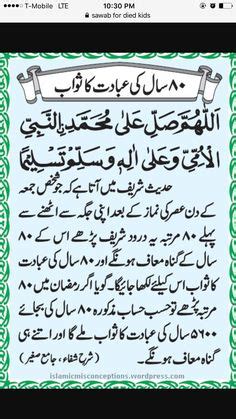 T-Mobile LTE 10:30 PM
sawab for died kids
۸۰ سال کی عبادت کا ثواب
اَللّٰهُمَّ صَلِّ عَلٰى مُحَمَّدِ ۨالنَّبِيِّ
الْاُمِّيِّ وَعَلٰى اٰلِهٖ وَسَلِّمْ تَسْلِيْمًا
حدیث شریف میں آتا ہے کہ جو شخص جمعہ
کے دن عصر کی نماز کے بعد اپنی جگہ سے اٹھنے سے
پہلے ۸۰ مرتبہ یہ درود شریف پڑھے اس کے ۸۰
سال کے گناہ معاف ہونگے اور ۸۰ سال کی عبادت
کا ثواب اس کیلئے لکھا جائیگا۔ گویا اگر رمضان میں ۸۰
مرتبہ پڑھے تو حسب حساب مذکورہ ۸۰ سال کی بجائے
۵۶۰۰ سال کی عبادت کا ثواب ملے گا اور اتنے ہی
گناہ معاف ہونگے۔ (شرح شفاء ، جامع صغیر)
islamicmisconceptions.wordpress.com